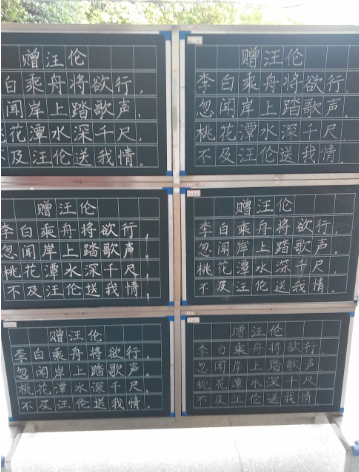 赠汪伦
白乘舟将欲行，
闻岸上踏歌声。
花潭水深千尺，
不及汪伦送我情。
赠汪伦
李白乘舟将欲行，
忽闻岸上踏歌声。
桃花潭水深千尺，
不及汪伦送我情。
赠汪伦
李白乘舟将欲行，
忽闻岸上踏歌声。
桃花潭水深千尺，
不及汪伦送我情。
赠汪伦
李白乘舟将欲行，
忽闻岸上踏歌声。
桃花潭水深千尺，
不及汪伦送我情。
赠汪伦
李白乘舟将欲行，
忽闻岸上踏歌声。
桃花潭水深千尺，
不及汪伦送我情。
赠汪伦
李白乘舟将欲行，
忽闻岸上踏歌声。
桃花潭水深千尺
不及汪伦送我情。